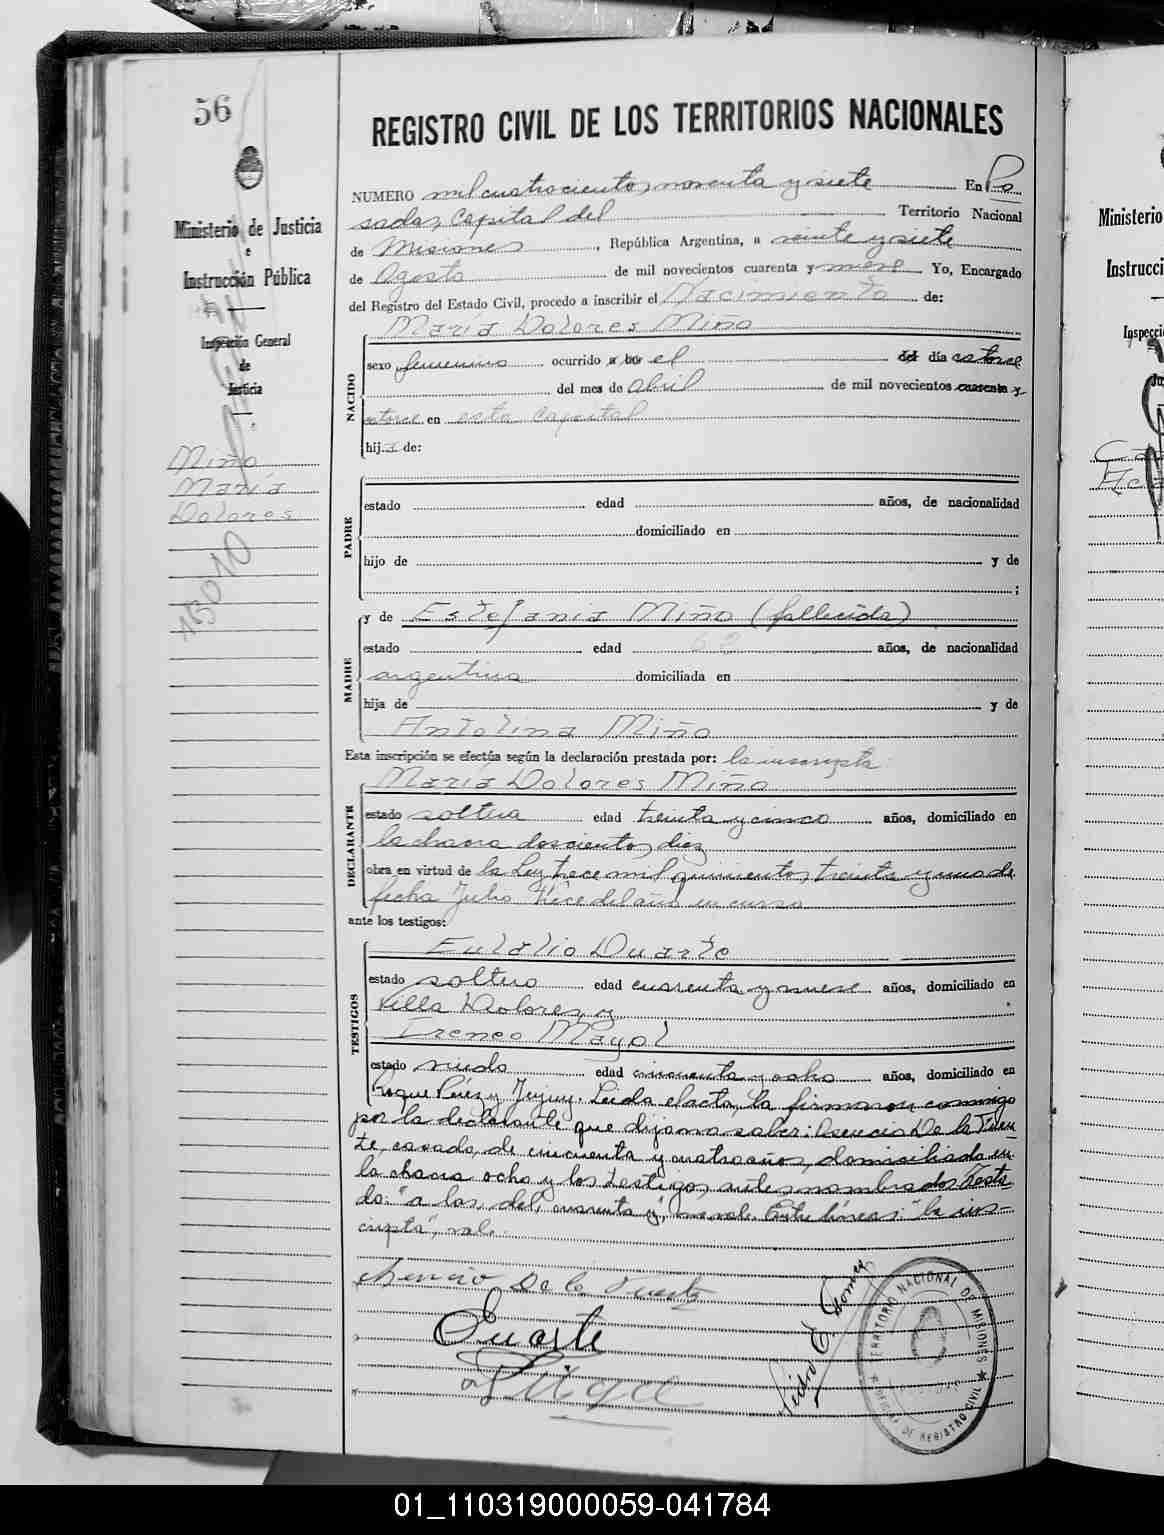 56
REGISTRO CIVIL DE LOS TERRITORIOS NACIONALES
Ministerio de Justicia
e
Instrucción Pública
Inspección General
de
Justicia
Miño
María
Dolores
15010
NUMERO mil cuatrocientos noventa y siete En Po
sadas, Capital del Territorio Nacional
de Misiones, República Argentina, a veinte y siete
de Agosto de mil novecientos cuarenta y nueve Yo, Encargado
del Registro del Estado Civil, procedo a inscribir el Nacimiento de:
María Dolores Miño
NACIDO
sexo femenino ocurrido a las el del día catorce
del mes de abril de mil novecientos cuarenta y
catorce en esta Capital
hij a de:
PADRE
estado edad años, de nacionalidad
domiciliado en
hijo de y de
;
y de Estefania Miño (fallecida)
MADRE
estado edad años, de nacionalidad
argentina domiciliada en
hija de y de
Antolina Miño
Esta inscripción se efectúa según la declaración prestada por: la inscripta
María Dolores Miño
DECLARANTE
estado soltera edad treinta y cinco años, domiciliado en
la chacra doscientos diez
obra en virtud de la Ley trece mil quinientos treinta y uno de
fecha Julio trece del año en curso
ante los testigos:
Eulalio Duarte
TESTIGOS
estado soltero edad cuarenta y nueve años, domiciliado en
Villa Dolores, y
Ireneo Mayol
estado viudo edad cincuenta y ocho años, domiciliado en
Roque Pérez y Jujuy. Leida el acta, la firmaron conmigo
por la declarante que dijo no saber: Asencio De la Fuen-
te, casado, de cincuenta y cuatro años, domiciliado en
la chacra ocho y los testigos antes nombrados. Testa
do: "a las, del, cuarenta y", no vale. Entre líneas: "la ins-
cripta", vale.
Asencio De la Fuente
Duarte
Pedro E. Gomez
TERRITORIO NACIONAL DE MISIONES
DE REGISTRO CIVIL
Ministerio
Instrucci
Inspecci
01_110319000059-041784